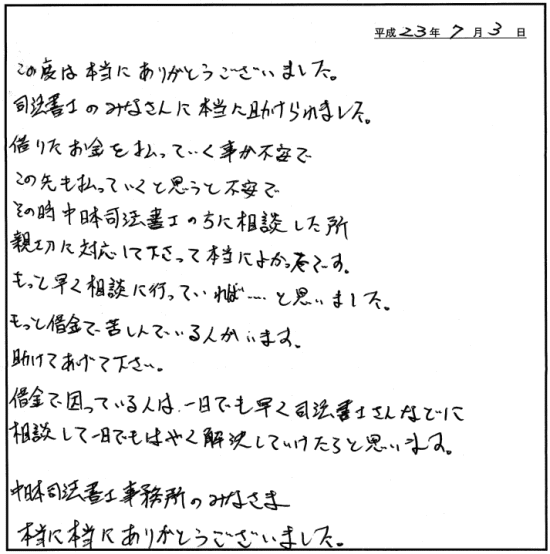 平成23年7月3日
この度は本当にありがとうございました。
司法書士のみなさんに本当に助けられました。
借りたお金を払っていく事が不安で
この先も払っていくと思うと不安で
その時中日本司法書士のちに相談した所
親切に対応して下さって本当によかったです。
もっと早く相談に行っていれば…と思いました。
もっと借金で苦しんでいる人がいます。
助けてあげて下さい。
借金で困っている人は、一日でも早く司法書士さんなどに
相談して一日でもはやく解決していけたらと思います。
中日本司法書士事務所のみなさま
本当に本当にありがとうございました。